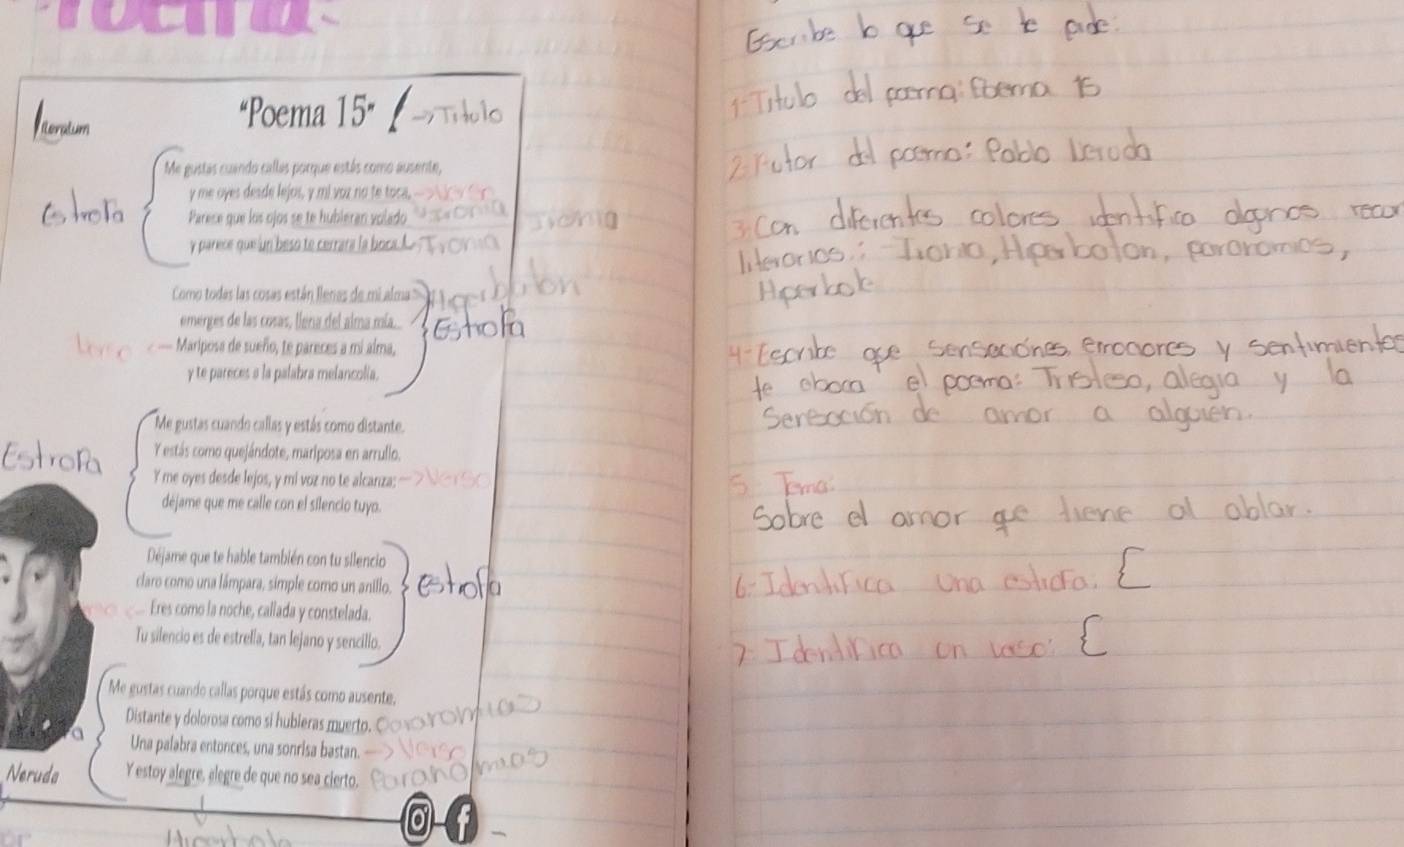 Poema
Literatum
"Poema 15" → Titulo
Me gustas cuando callas porque estás como ausente,
y me oyes desde lejos, y mi voz no te toca. → Verso
Estrofa
Parece que los ojos se te hubieran volado Ironia Ironia
y parece que un beso te cerrara la boca. Ironia
Como todas las cosas están llenas de mi alma
emerges de las cosas, llena del alma mía. Estrofa
Verso ← Mariposa de sueño, te pareces a mi alma,
y te pareces a la palabra melancolía.
Me gustas cuando callas y estás como distante.
Estrofa
Y estás como quejándote, mariposa en arrullo.
Y me oyes desde lejos, y mi voz no te alcanza: → Verso
déjame que me calle con el silencio tuyo.
Déjame que te hable también con tu silencio
claro como una lámpara, simple como un anillo. estrofa
Eres como la noche, callada y constelada.
Tu silencio es de estrella, tan lejano y sencillo.
Me gustas cuando callas porque estás como ausente,
Distante y dolorosa como si hubieras muerto.
Una palabra entonces, una sonrisa bastan. → Verso
Neruda
Y estoy alegre, alegre de que no sea cierto.
Escribe lo que se te pide:
1- Titulo del poema: Poema 15
2. Autor del poema: Pablo Neruda
3. Con diferentes colores identifica algunos recur
literarios: Ironia, Hiperbolon, paranomias,
Hiperbole
4- Escribe que sensaciones, emociones y sentimientos
te aboca el poema: Tristesa, alegia y la
sensación de amor a alguien.
5. Tema:
Sobre el amor que tiene al ablar.
6- Identifica una estrofa: {
7. Identifica un verso: {